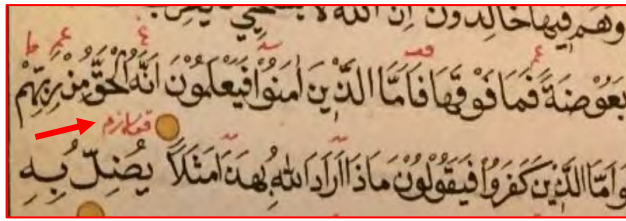 وَهُمْ فِيهَا خَالِدُونَ اِنَّ اللّٰهَ لَا يَسْتَحْيِي
بَعُوضَةً فَمَا فَوْقَهَا فَاَمَّا الَّذِينَ اٰمَنُوا فَيَعْلَمُونَ اَنَّهُ الْحَقُّ مِنْ رَبِّهِمْ
وَاَمَّا الَّذِينَ كَفَرُوا فَيَقُولُونَ مَاذَا اَرَادَ اللّٰهُ بِهٰذَا مَثَلًا يُضِلُّ بِهِ